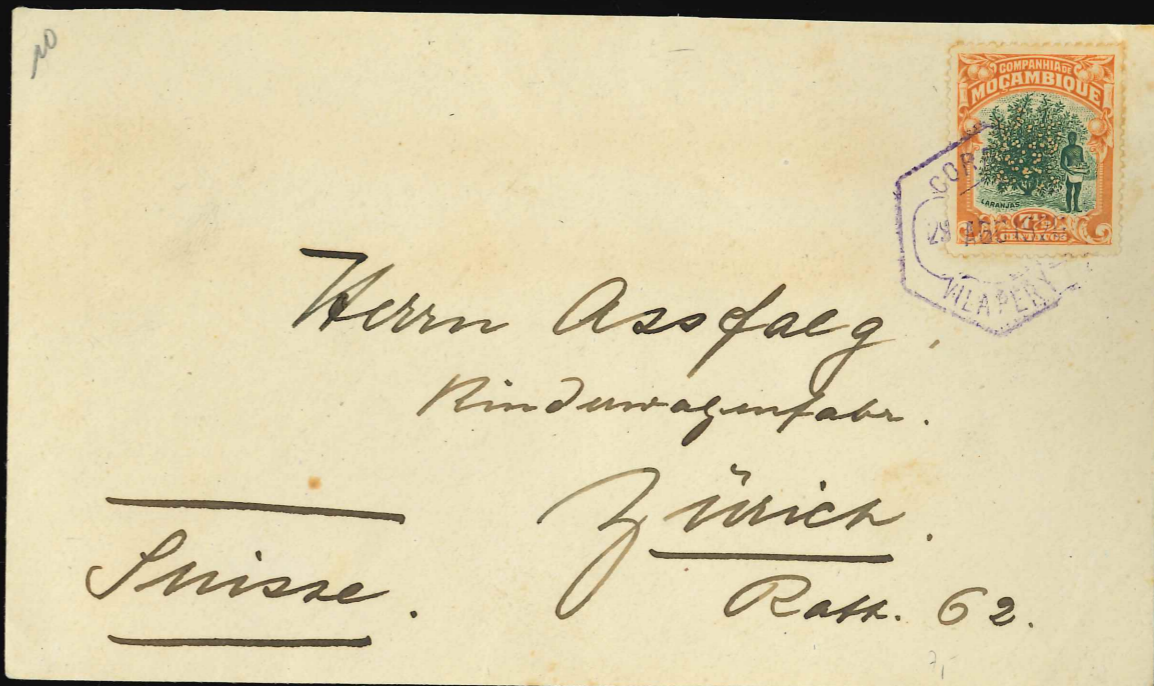 10
COMPANHIA DE
MOÇAMBIQUE
LARANJAS
CENTAVOS
COR
29 AGO
VILA PERY
Herrn Assfalg,
Kinderwagenfabr.
Zürich.
Suisse.
62.